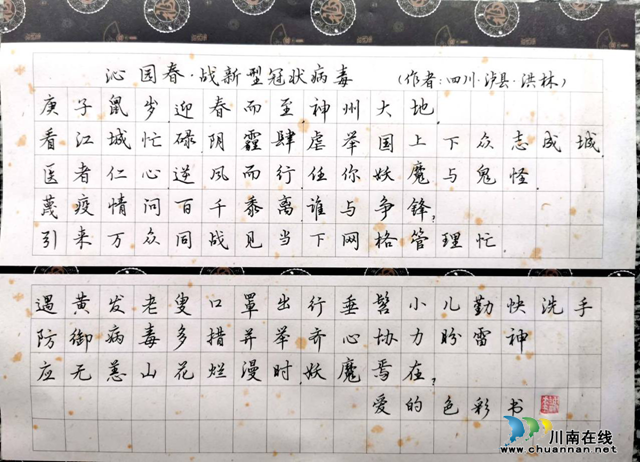 沁国春·战新型冠状病毒 (作者:四川·泸县·洪林)
庚子鼠岁,迎春而至,神州大地.
看江城忙碌,阴霾肆虐,举国上下众志成城.
医者仁心,逆风而行,任你妖魔与鬼怪.
蔑疫情,问百千黍离,谁与争锋?
引来万众同战,见当下网格管理忙.
遇黄发老叟口罩出行,垂髫小儿勤快洗手
防御病毒,多措并举,齐心协力盼雷神
应无恙,山花烂漫时,妖魔焉在?
爱的色彩书
川南在线
www.chuannan.net